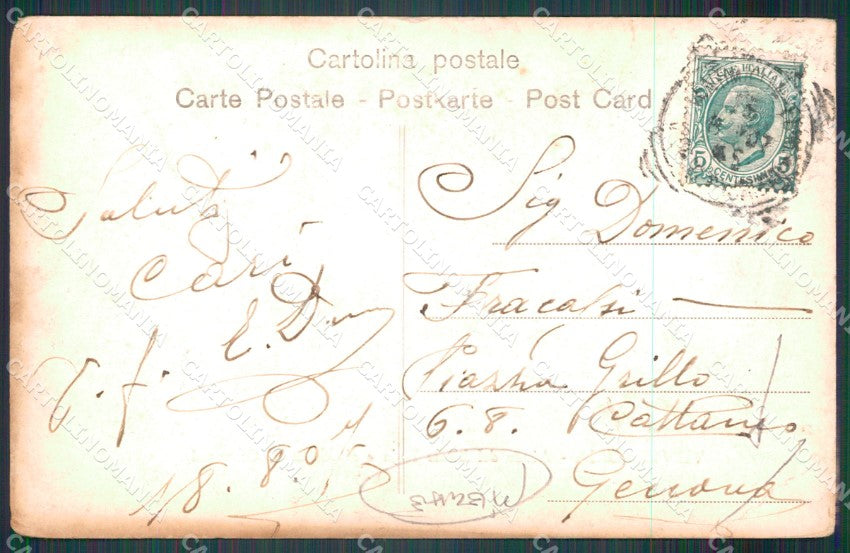 Cartolina postale
Carte Postale - Postkarte - Post Card
Saluti
Cari
E. D
Sig Domenico
Fracalsi
Piazza Grillo
6. 8. Cattaneo
Genova
18. 8. 0
POSTE ITALIANE
5 CENTESIMI 5
CARTOLINOMANIA